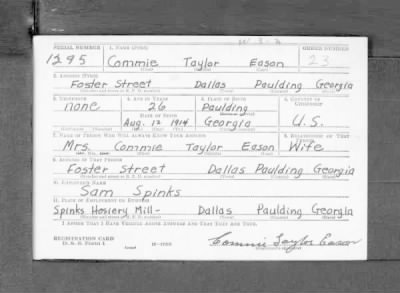 W.S.A
SERIAL NUMBER 1. NAME (Print) ORDER NUMBER
1295 Commie Taylor Eason 23
(First) (Middle) (Last)
2. ADDRESS (Print)
Foster Street Dallas Paulding Georgia
3. TELEPHONE 4. AGE IN YEARS 5. PLACE OF BIRTH 6. COUNTRY OF CITIZENSHIP
none 26 Paulding
DATE OF BIRTH
Aug. 12 1914 Georgia U.S.
7. NAME OF PERSON WHO WILL ALWAYS KNOW YOUR ADDRESS 8. RELATIONSHIP OF THAT PERSON
Mrs. Commie Taylor Eason Wife
9. ADDRESS OF THAT PERSON
Foster Street Dallas Paulding Georgia
10. EMPLOYER'S NAME
Sam Spinks
11. PLACE OF EMPLOYMENT OR BUSINESS
Spinks Hosiery Mill- Dallas Paulding Georgia
I AFFIRM THAT I HAVE VERIFIED ABOVE ANSWERS AND THAT THEY ARE TRUE.
REGISTRATION CARD
D. S. S. Form 1 Commie Taylor Eason